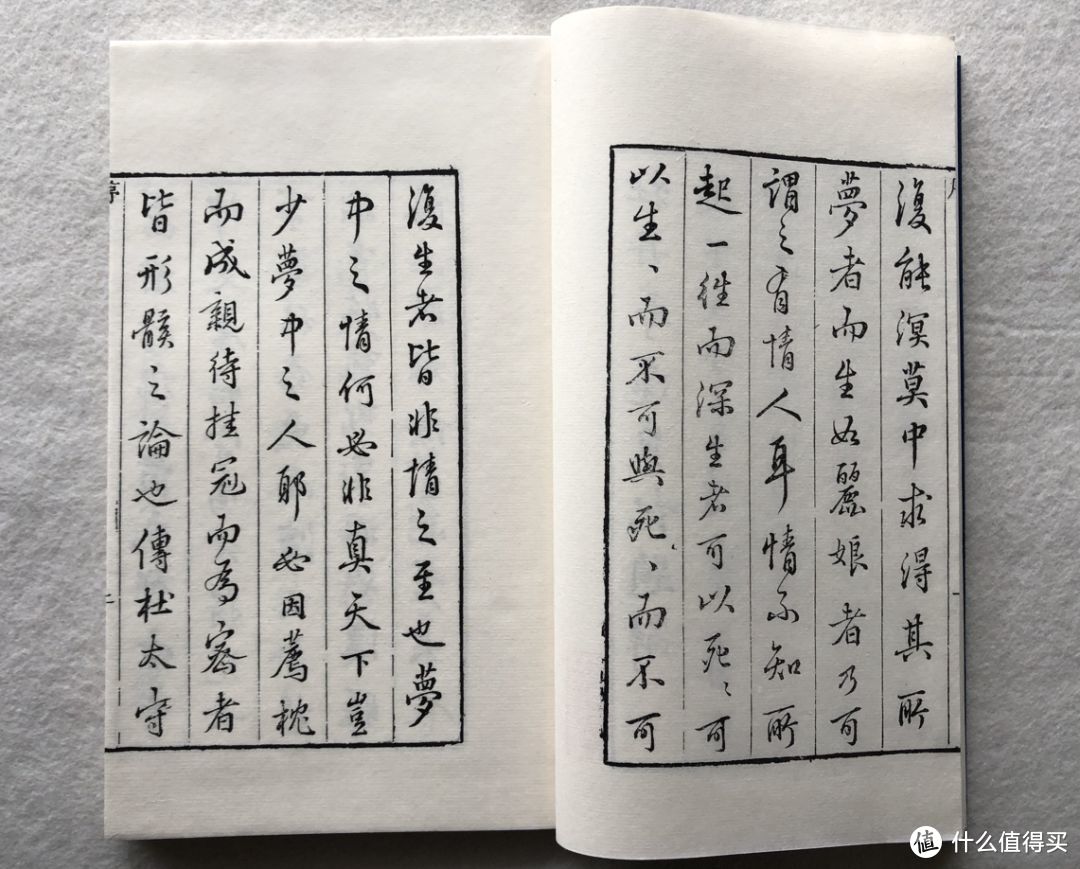 復能溟莫中求得其所
夢者而生如麗娘者乃可
謂之有情人耳情不知所
起一往而深生者可以死、可
以生、而不可與死、而不可
復生者皆非情之至也夢
中之情何必非真天下豈
少夢中之人耶必因薦枕
而成親待挂冠而為密者
皆形骸之論也傳杜太守
值 什么值得买